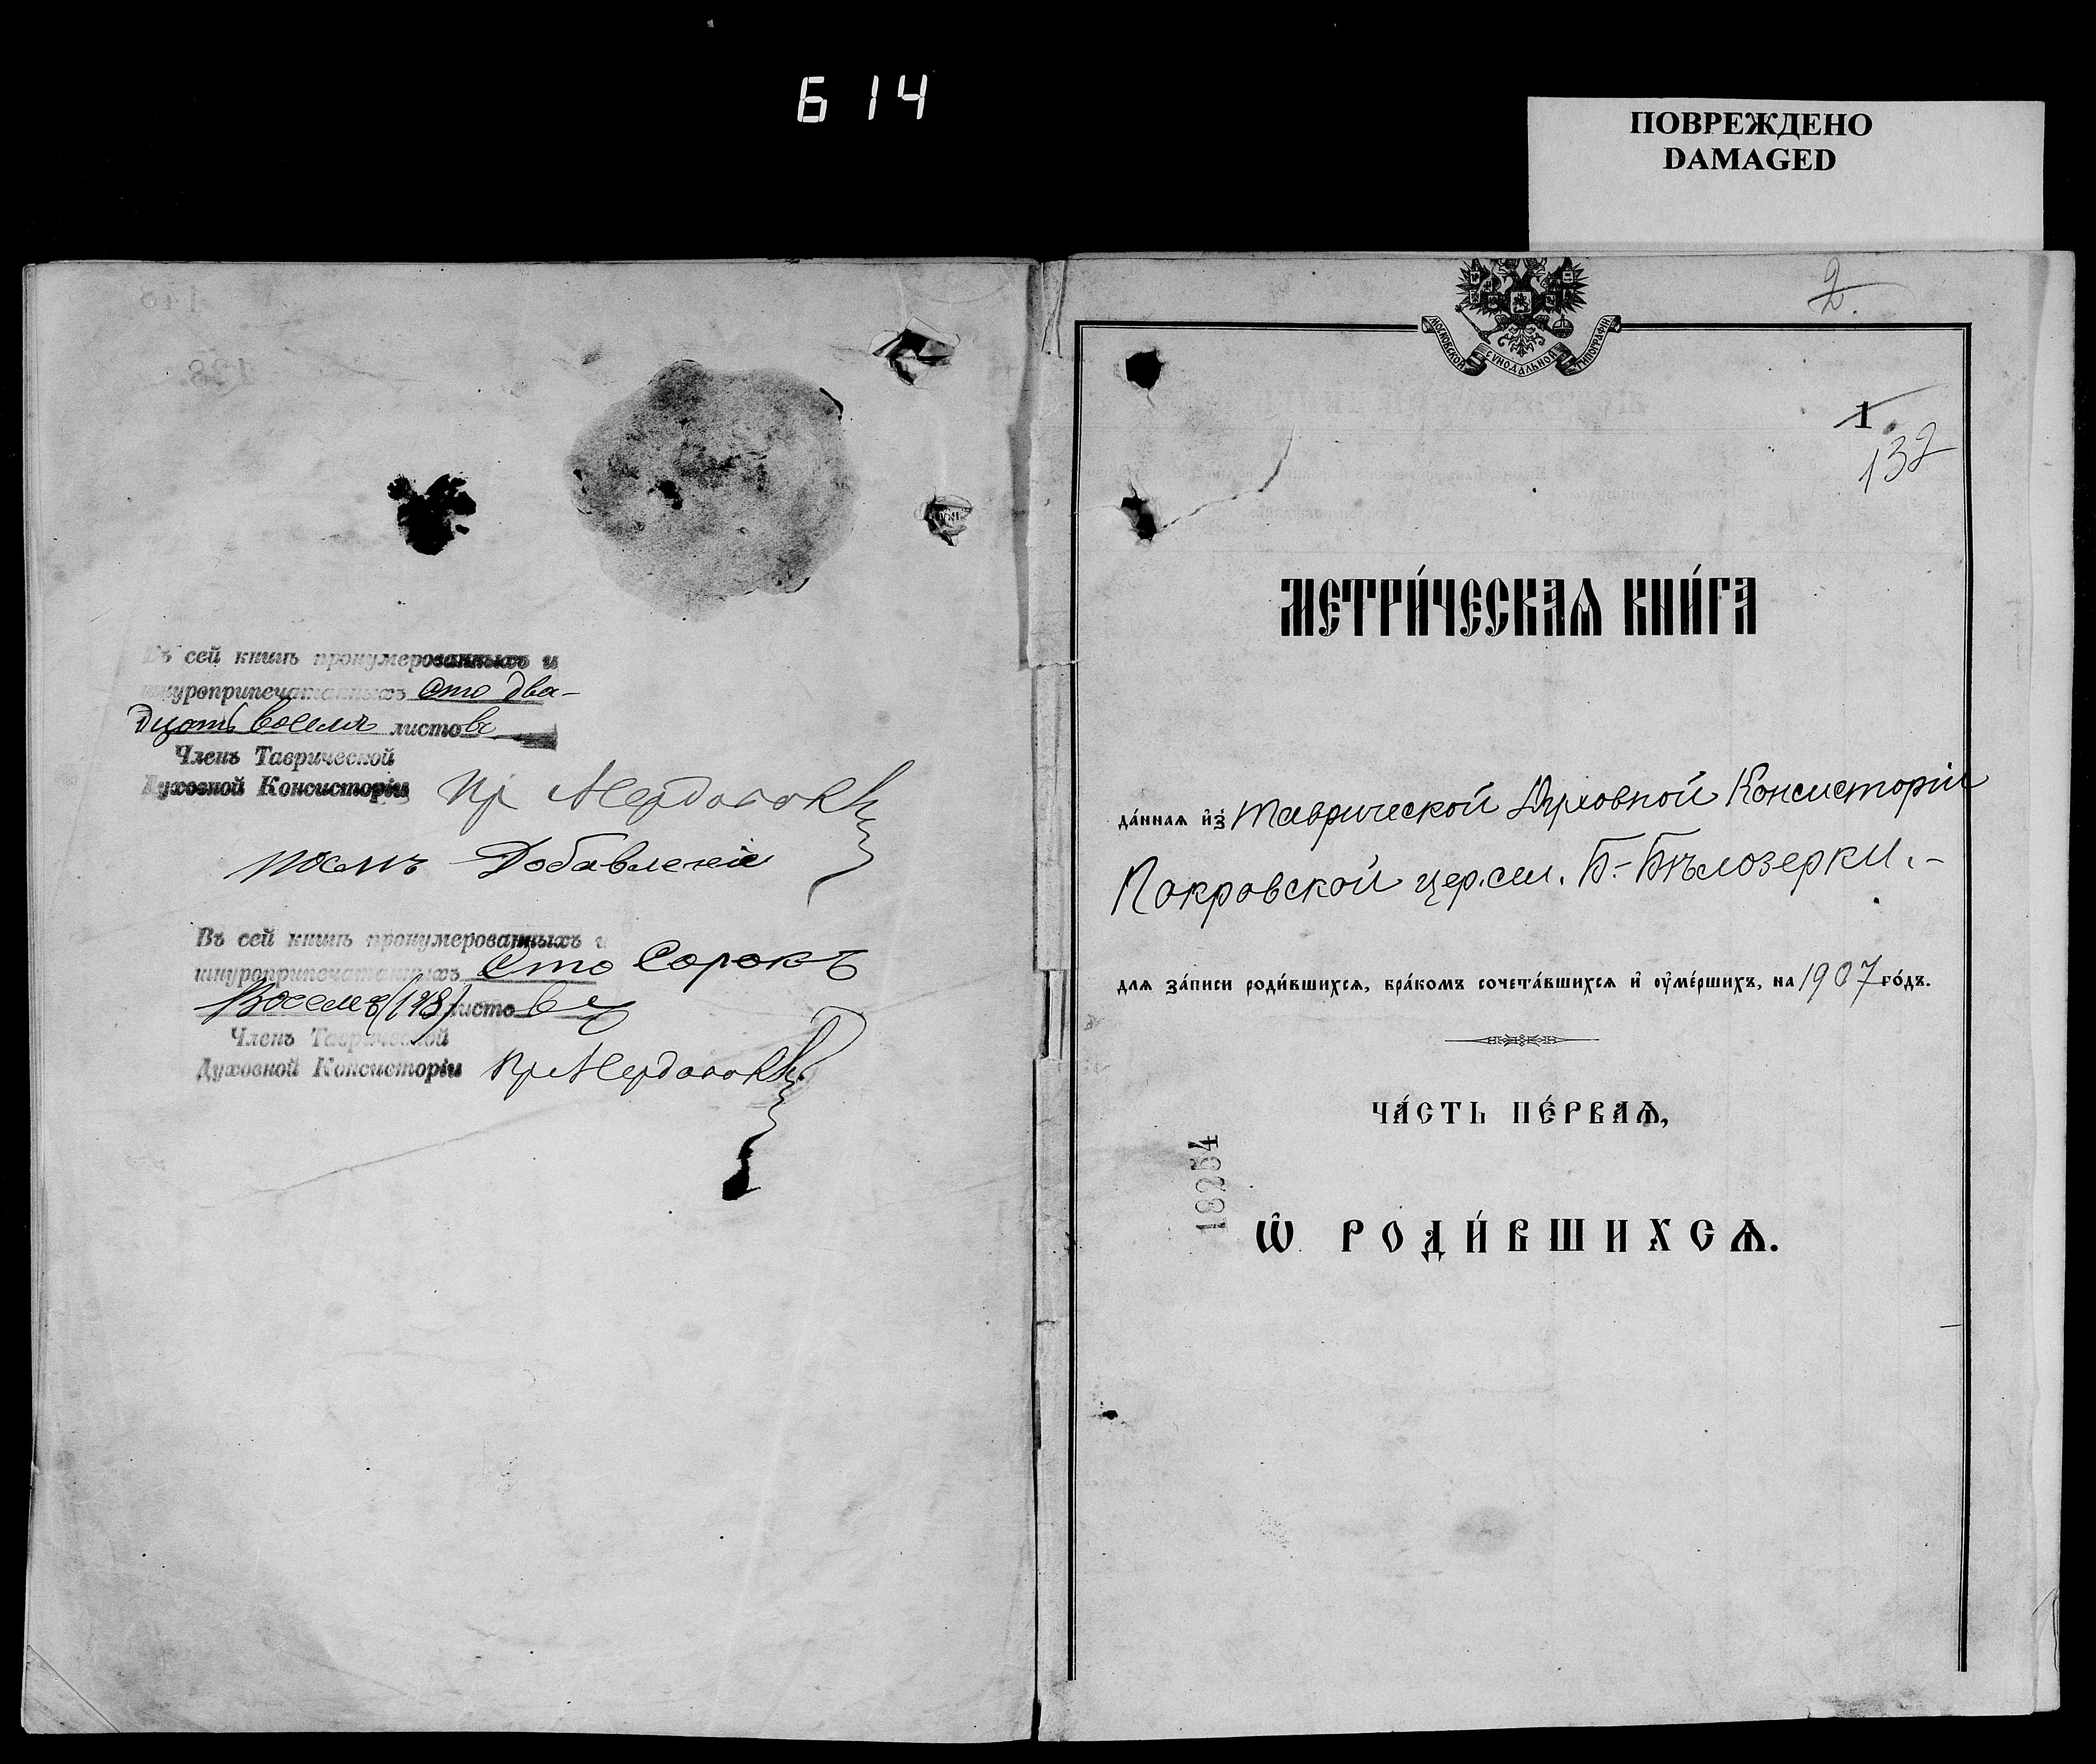 614
ПОВРЕЖДЕНО
DAMAGED
148
128.
Въ сей книгѣ пронумерованныхъ и
шнуроприпечатанныхъ Сто два-
дцать восемь листовъ
Членъ Таврической
Духовной Консисторіи Пр
Добавленіе
Въ сей книгѣ пронумерованныхъ и
шнуроприпечатанныхъ Сто Сорокъ
Восемь (148) листовъ
Членъ Таврической
Духовной Консисторіи Пр
2.
МОСКОВСКОЙ СѴНОДАЛЬНОЙ ТИПОГРАФІИ
1.
132
МЕТРИ́ЧЕСКАѦ КНИ́ГА
да́ннаѧ и҆з̾ Таврической Духовной Консисторіи
Покровской цер. сел. Б.-Бѣлозерки.-
для за́писи роди́вшихсѧ, бра́комъ сочета́вшихсѧ и҆ ᲂу҆ме́ршихъ, на 1907 го́дъ.
ЧА́СТЬ ПЕ́РВАѦ,
18254
Ѽ РОДИ́ВШИХСѦ.